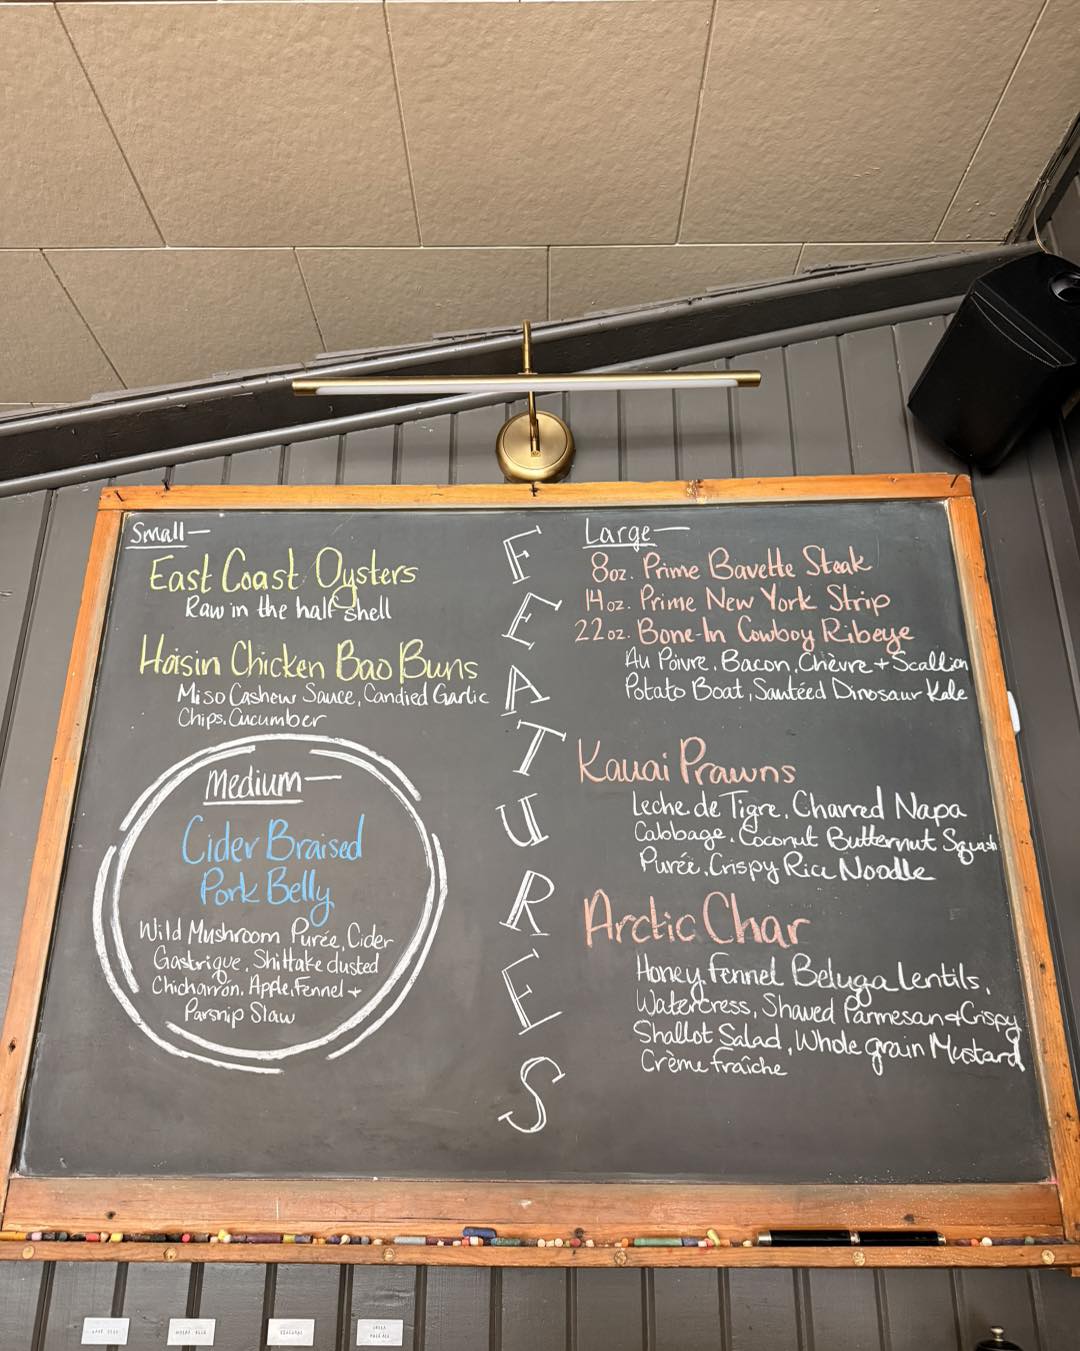 Small—
East Coast Oysters
Raw in the half shell
Hoisin Chicken Bao Buns
Miso Cashew Sauce, Candied Garlic
Chips, Cucumber
Medium—
Cider Braised
Pork Belly
Wild Mushroom Purée, Cider
Gastrique, Shiitake dusted
Chicharron, Apple, Fennel +
Parsnip Slaw
FEATURES
Large—
8oz. Prime Bavette Steak
14oz. Prime New York Strip
22oz. Bone-In Cowboy Ribeye
Au Poivre, Bacon, Chèvre + Scallion
Potato Boat, Sautéed Dinosaur Kale
Kauai Prawns
Leche de Tigre, Charred Napa
Cabbage, Coconut Butternut Squash
Purée, Crispy Rice Noodle
Arctic Char
Honey Fennel Beluga Lentils,
Watercress, Shaved Parmesan + Crispy
Shallot Salad, Whole grain Mustard
Crème fraîche